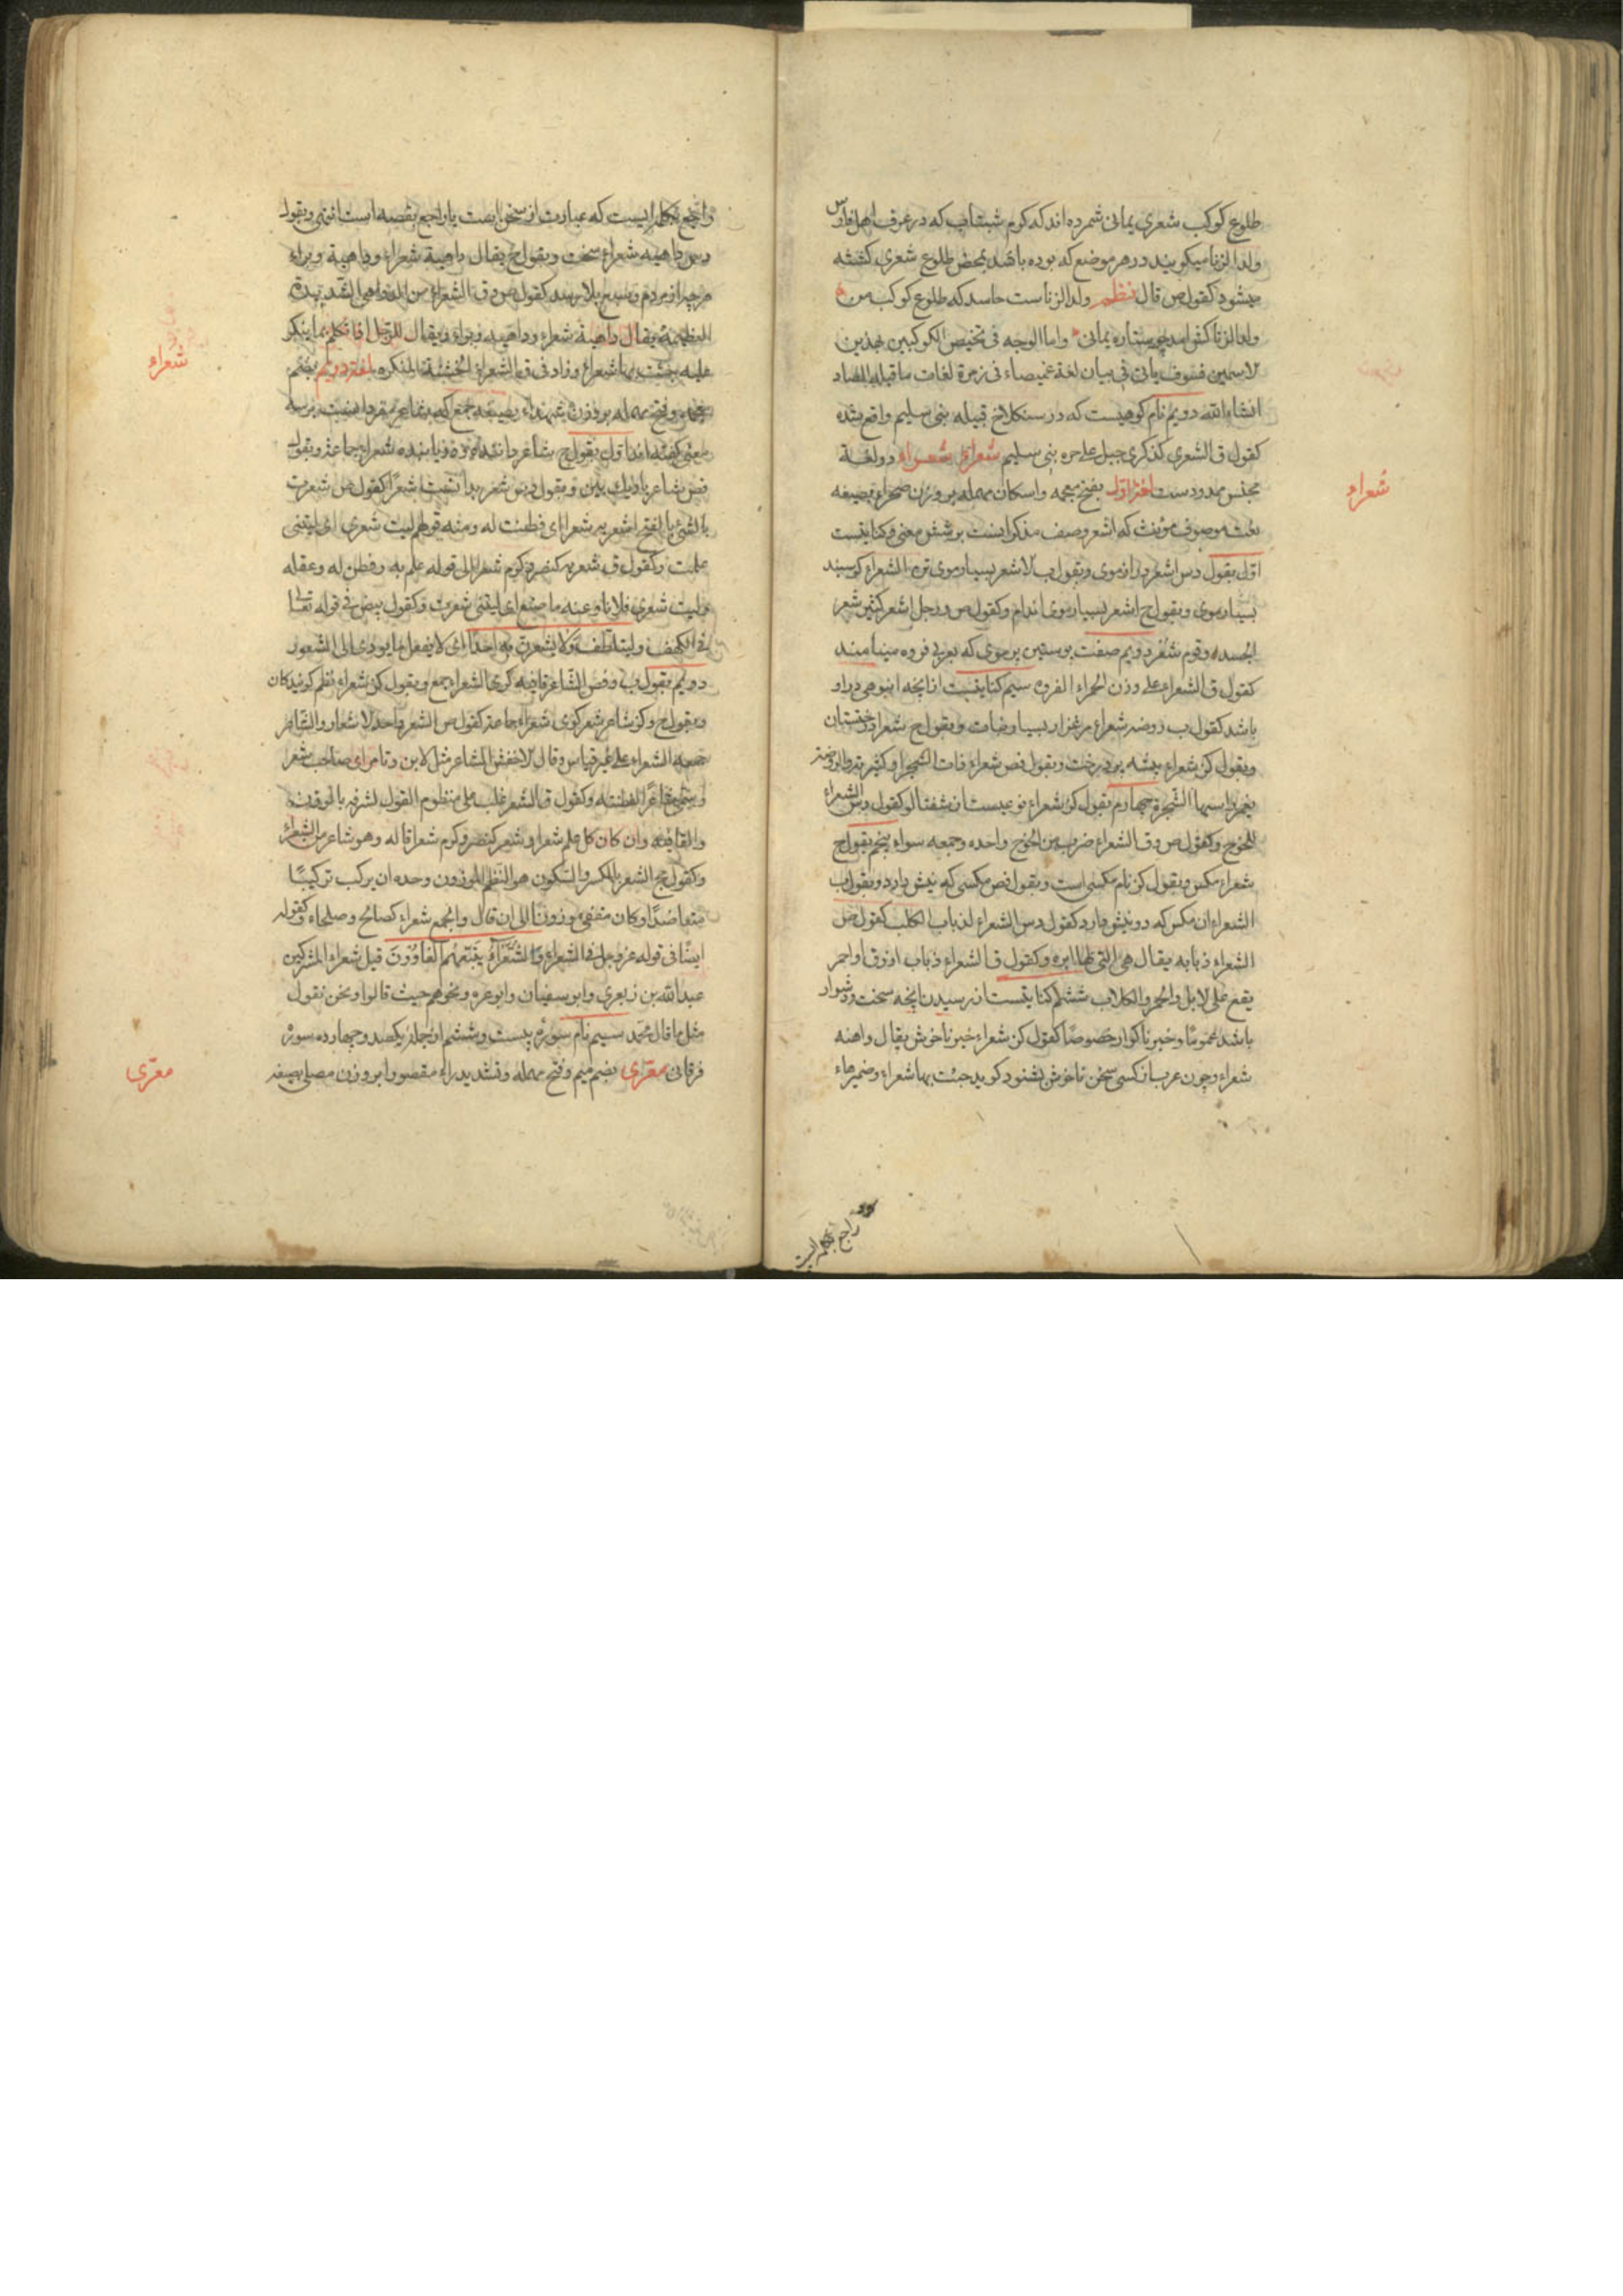 طلوع کوکب شعری یمانی شمرده اند که کرم شبتاب که در عرف اهل فارس
ولد الزنا میکویند در هر موضع که بوده باشد بمحض طلوع شعری کشته
میشود کقول ص قال نظم ولد الزناست حاسد که طلوع کوکب من
ولد الزنا کش امد چو ستاره یمانی واما الوجه فی تخیص الکوکبین بهذین
لاسمین فسوف یاتی فی بیان لغة غمیصاء فی زمرة لغات ما قبله الصاد
انشاء الله دویم نام کوهیست که در سنکلاخ قبیله بنی سلیم واقع شده
کقول ق الشعری کذکری جبل علی حره بنی سلیم شعراء شعراء دو لغة
مجنس ممدودست لغة اول بفتح معجمه واسکان مهمله بر وزن صحراء بصیغه
نعت موصوف مونث که اشعر وصف مذکر انست بر شش معنی وکنایتست
اول بقول دس اشعر دراز موی وبقول ب لا شعر بسیار موی تن الشعراء کوسپند
بسیار موی وبقول ج اشعر بسیار موی اندام وکقول ص رجل اشعر کثیر شعر
الجسد وقوم شعر دویم صفت پوستین پر موی که بعربی فروه مینامند
کقول ق الشعراء علی وزن الحمراء الفروه سیم کنایتست از انچه انبوهی دران
باشد کقول ب روضه شعراء مرغزار بسیار نبات وبقول ج شعراء درختستان
وبقول کن شعراء بیشه پر درخت وبقول فص شعراء ذات الشجر او کثیرته والروضة
یغمر راسها الشجرة چهارم بقول کن شعراء نوعیست از شفتالو کقول دس الشعراء
للخوخ وکقول ص و ق الشعراء ضرب من الخوخ واحده وجمعه سواء پنجم بقول ج
شعراء مکس وبقول کن نام مکسی است وبقول فص مکسی که نیش دارد وبقول ب
الشعراء ان مکس که دو نیش دارد کقول دس الشعراء لذباب الکلب کقول ص
الشعراء ذبابه یقال هی التی لها ابره وکقول ق الشعراء ذباب ازرق او احمر
یقع علی لابل والحمر والکلاب ششم کنایتست از رسیدن انچه سخت ودشوار
باشد عموما وخبر ناکوار خصوصا کقول کن شعراء خبر ناخوش یقال داهیه
شعراء وچون عرب از کسی سخن ناخوش بشنود کوید جئت بها شعراء وضمیر هاء
شعراء
راجع بکلمه ایست
راجع بکلمه ایست که عبارت از سخن است یا راجع بقصه است انتهی وبقول
دس داهیه شعراء سخت وبقول ج یقال داهیة شعراء وداهیة وبراء
العظیمة یقال داهیة شعراء وداهیه وبراء ویقال للرجل اذا تکلم بما ینکر
علیه جئت بها شعراء وزاد فی ق الشعراء الخشنة المنکره لغة دویم بضم
معجمه وفتح مهمله بر وزن
معنی کفته اند اول بقول ج شاعر داننده ودریابنده شعراء جماعة وبقول
فص شاعر
بالشئ بالفتح اشعر به شعرا ای فطنت له ومنه قولهم لیت شعری ای لیتنی
علمت وکقول ق شعر به کنصر وکرم شعرا الی قوله علم به وفطن له وعقله
ولیت شعری فلانا وعنه ما صنع ای لیتنی شعرت وکقول بیض فی قوله تعا
فی الکهف ولیتلطف ولا یشعرن بکم احدا ای لا یفعل ما یودی الی الشعور
دویم بقول ب وفص الشاعر قافیه کوی الشعراء جمع وبقول کن شعراء نظم کویندکان
وبقول ج وکن شاعر شعر کوی شعراء جماعة کقول ص الشعر واحد لاشعار والشاعر
جمعه الشعراء علی غیر قیاس وقال لاخفش الشاعر مثل لابن وتامر ای صاحب شعر
وسمی شاعرا لفطنته وکقول ق الشعر غلب علی منظوم القول لشرفه بالوزن
والقافیه وان کان کل علم شعرا وشعر کنصر وکرم شعرا قاله وهو شاعر من الشعراء
وکقول مج الشعر بالکسر والسکون هو النظم الموزون وحده ان یرکب ترکیبا
متعاضدا وکان مقفی موزونا الی ان قال والجمع شعراء کصالح وصلحاء وکقوله
ایضا فی قوله عز وجل فی الشعراء والشعراء یتبعهم الغاوون قیل شعراء المشرکین
عبد الله بن زبعری وابو سفیان وابو عزه ونحوهم حیث قالوا ونحن نقول
مثل ما قال محمد سیم نام سوره بیست وششم از جمله یکصد وچهارده سوره
فرقانی معری بضم میم وفتح مهمله وتشدید راء مقصور بر وزن مصلی بصیغه
شعراء
معری